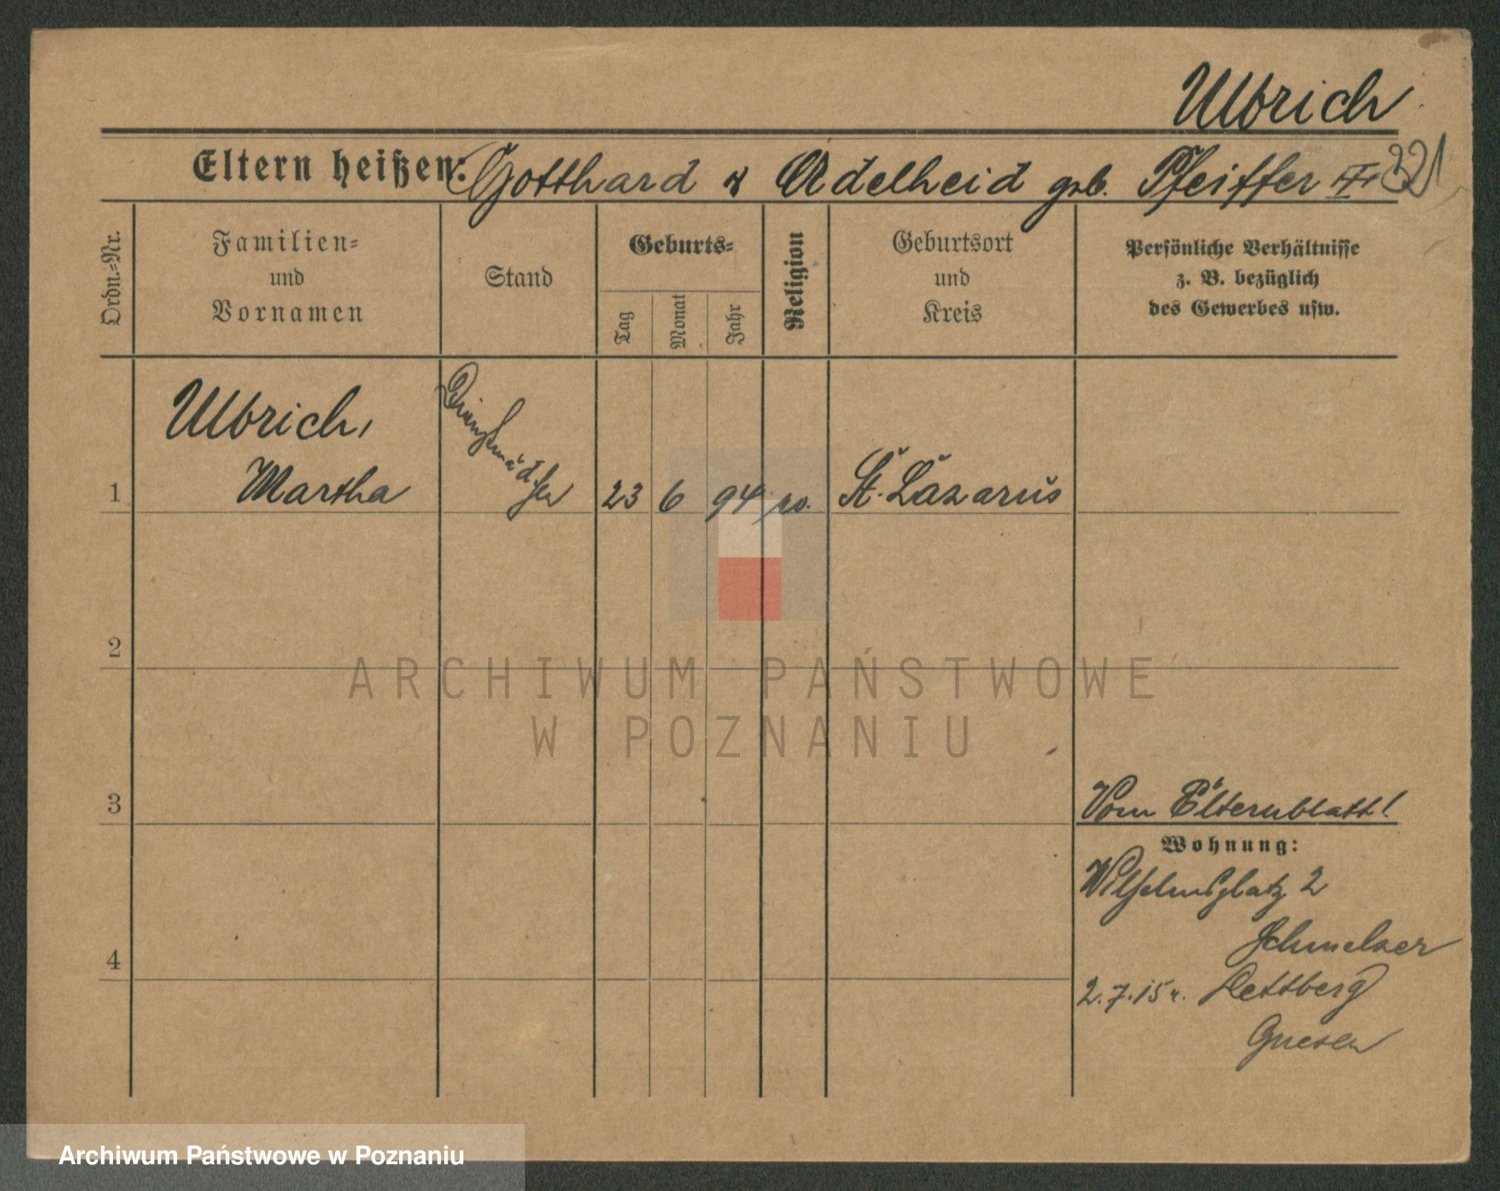 Ulbrich
Eltern heißen: Gotthard & Adelheid geb. Pfeiffer 321
Ordn.-Nr.
Familien-
und
Vornamen
Stand
Geburts-
Tag
Monat
Jahr
Religion
Geburtsort
und
Kreis
Persönliche Verhältnisse
z. B. bezüglich
des Gewerbes usw.
Ulbrich,
1 Martha Dienstmädchen 23 6 94 St. Lazarus
2
ARCHIWUM PAŃSTWOWE
W POZNANIU
3 Vom Elternblatt!
Wohnung:
Wilhelmsplatz 2
Schmelzer
4
2.7.15 n. Rettberg
Gnesen
Archiwum Państwowe w Poznaniu